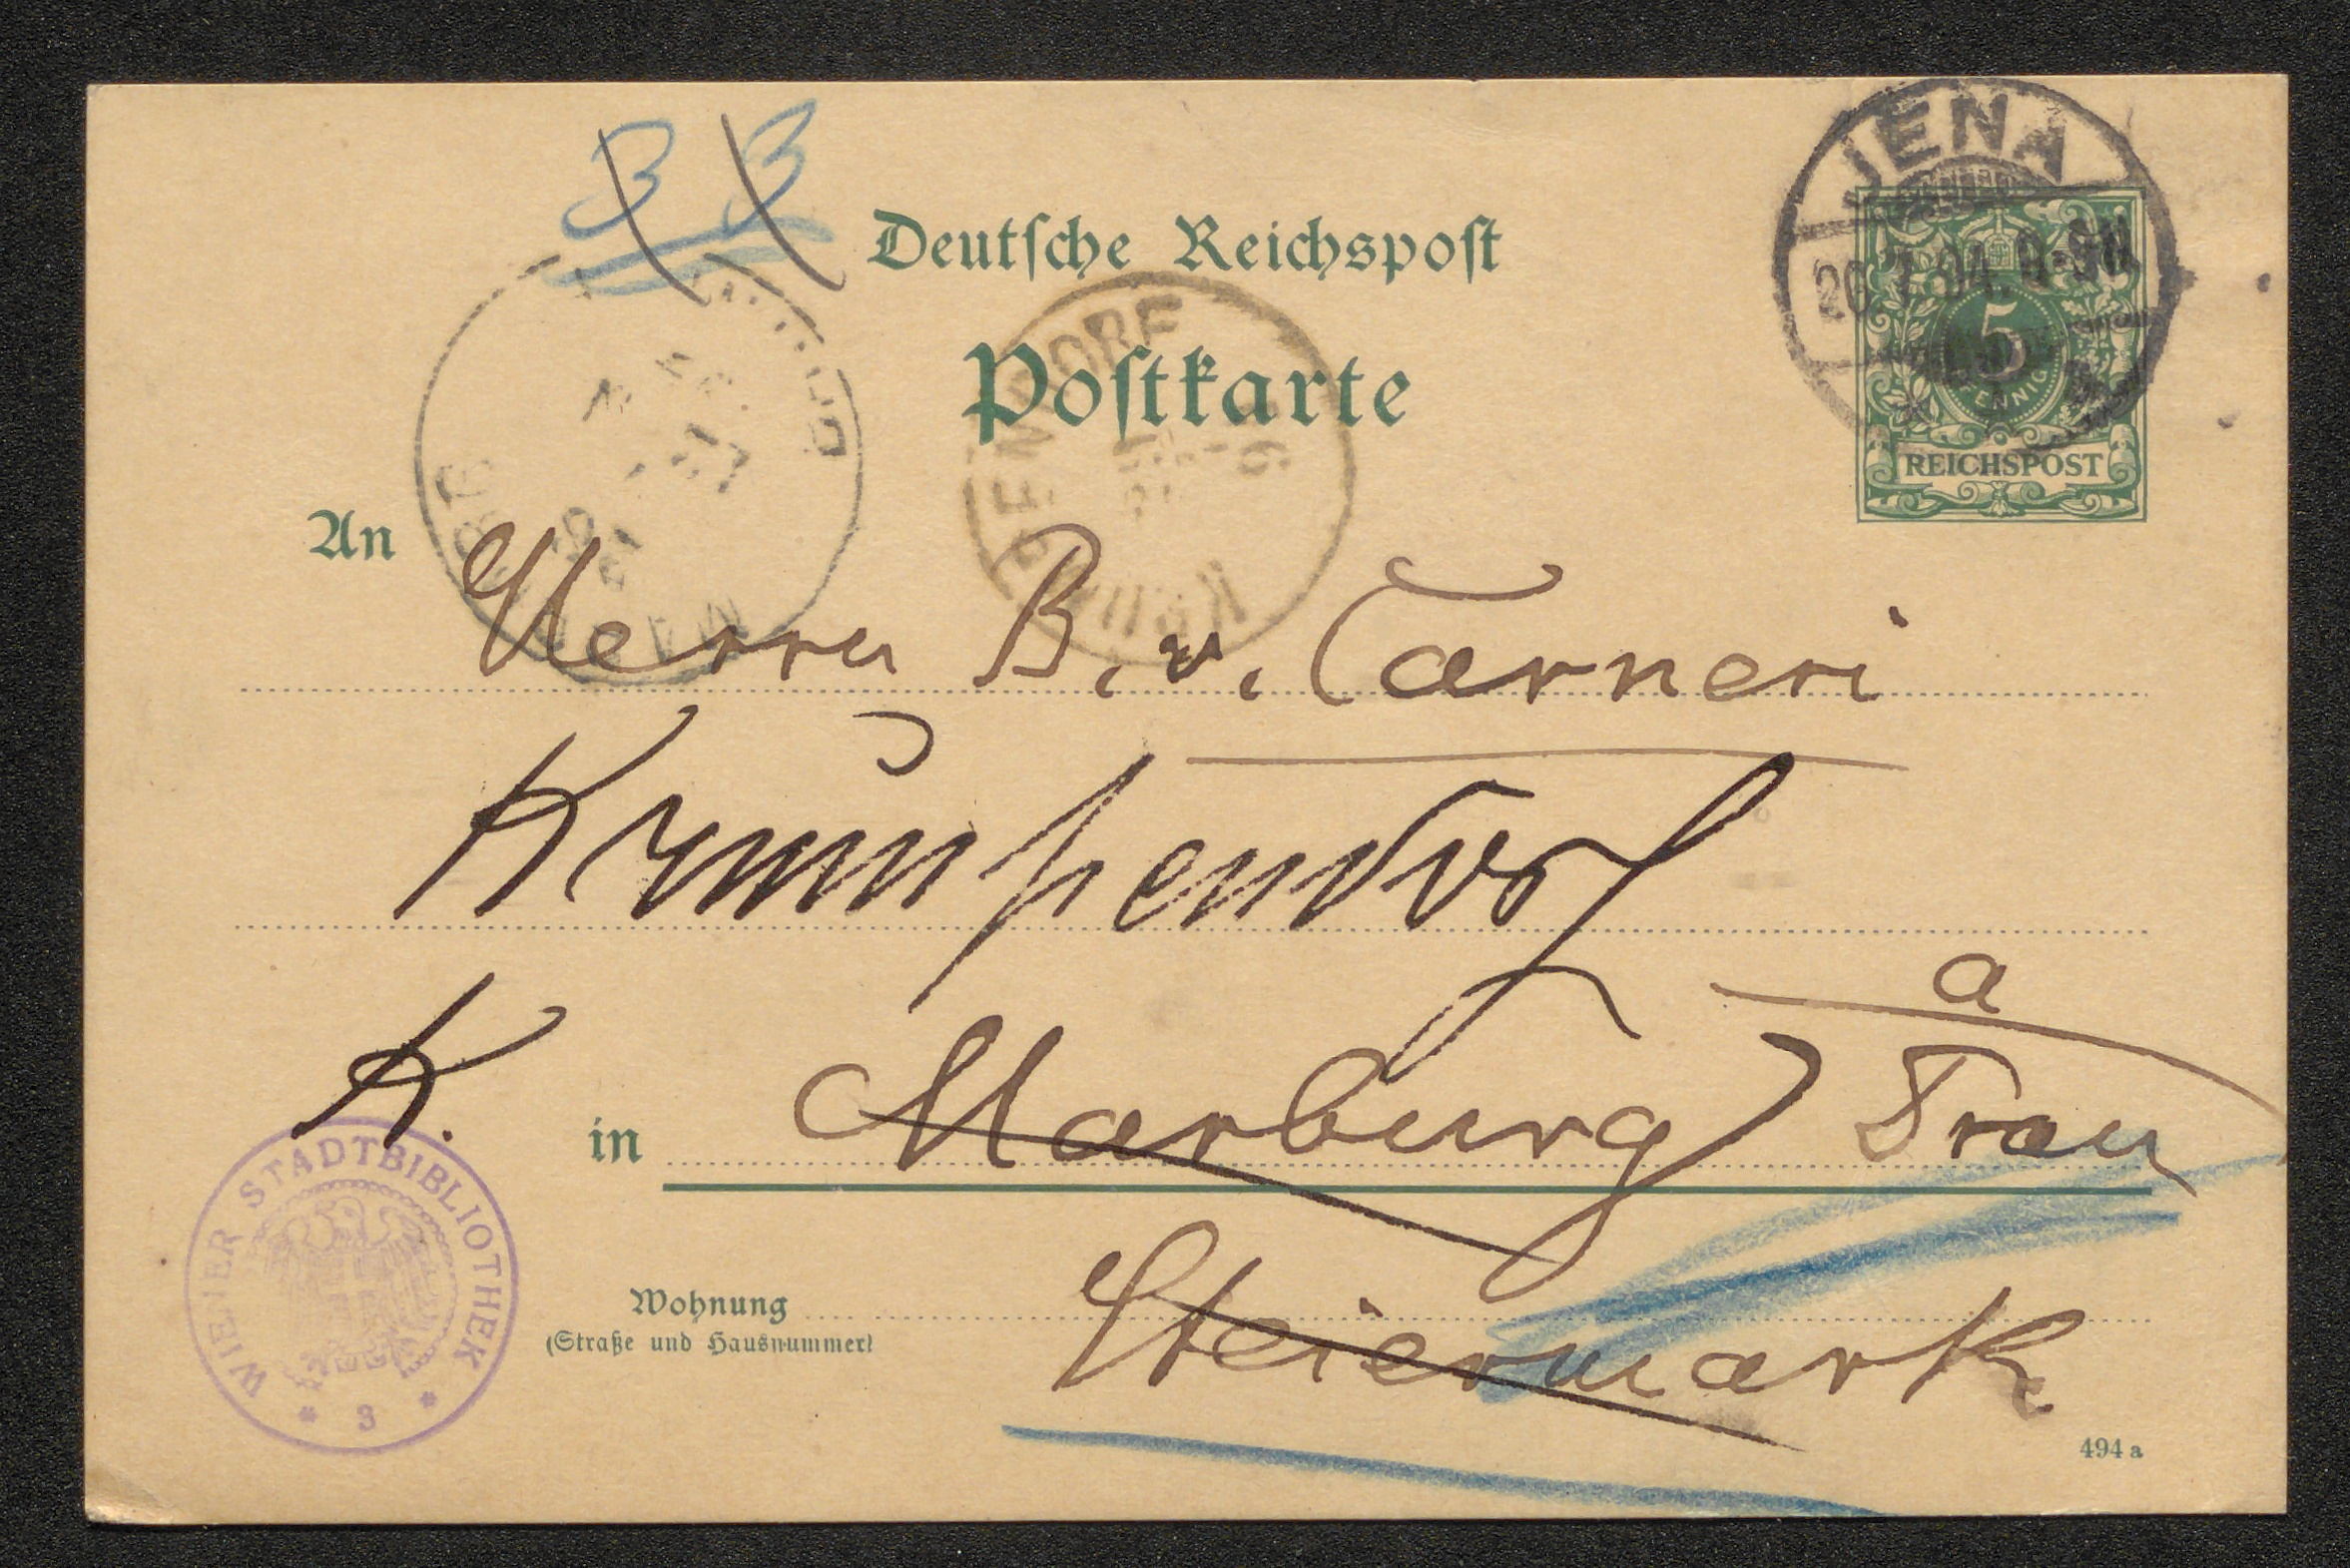 33
Deutsche Reichspost
JENA
Postkarte
5
PFENNIG
REICHSPOST
An
Herrn B. v. Carneri
Krumpendorf
a
K.
in Marburg Drau
Steiermark
Wohnung
(Straße und Hausnummer)
WIENER STADTBIBLIOTHEK
* 3 *
494 a